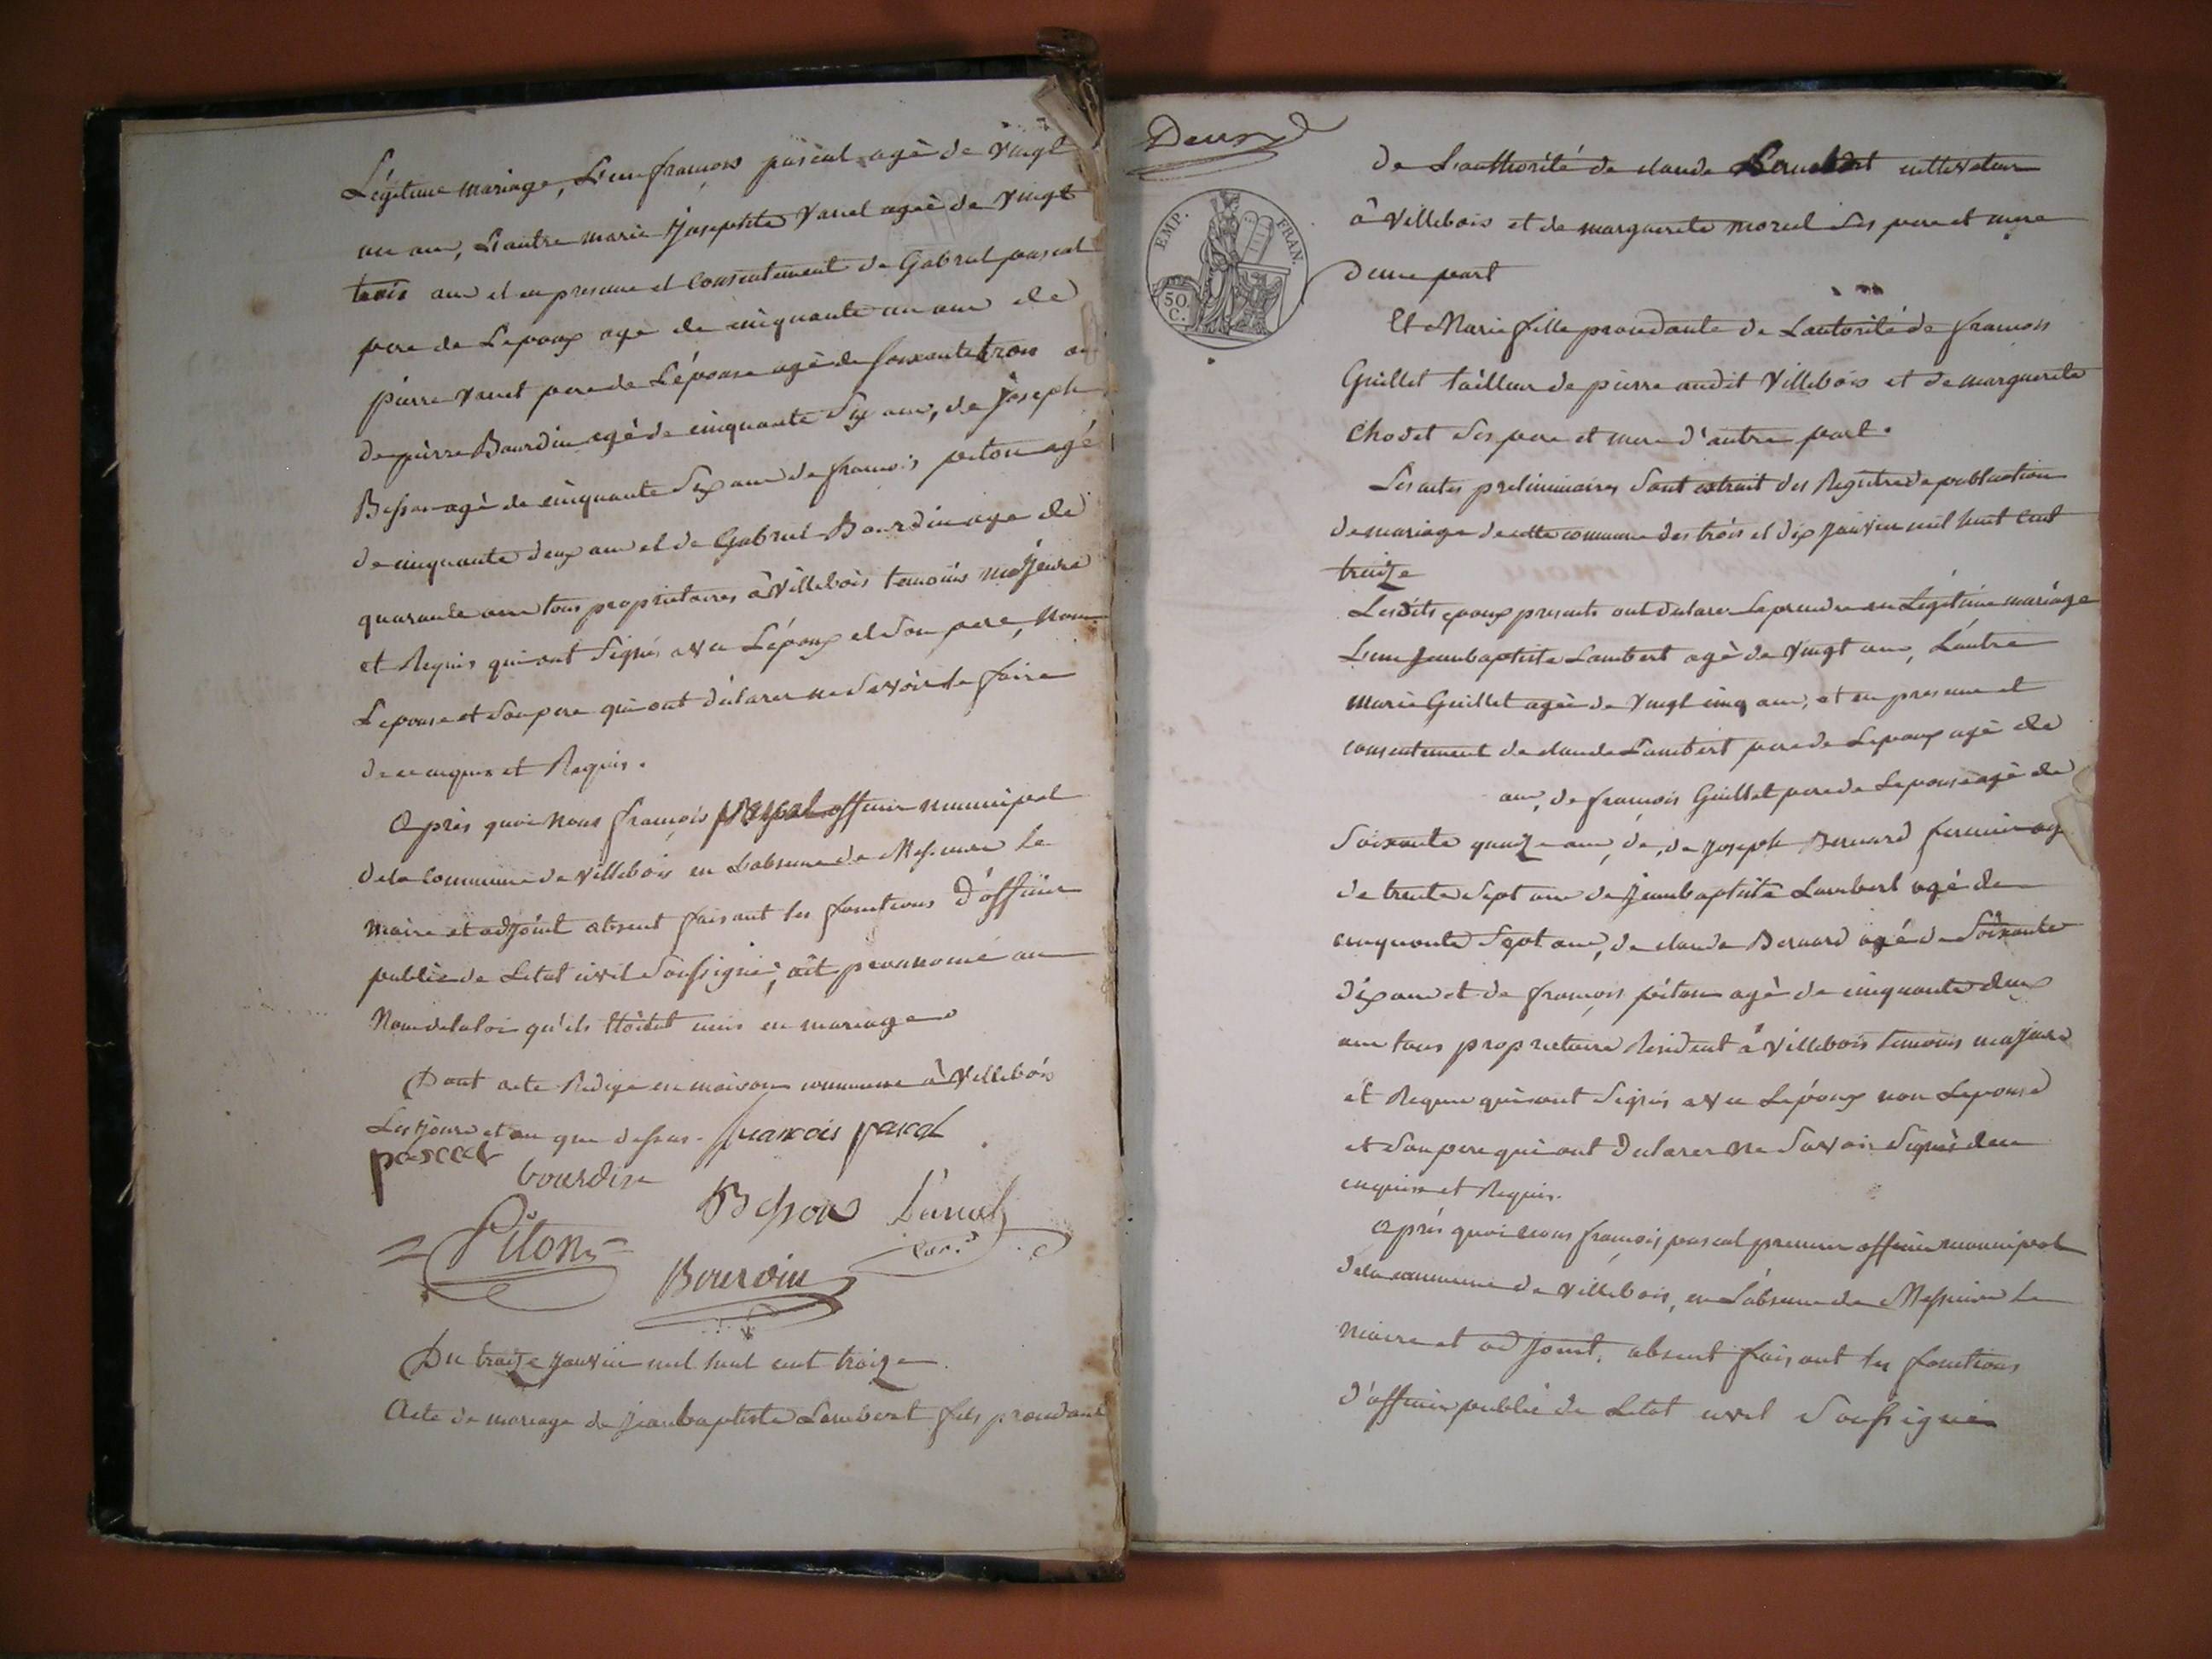 Légitime mariage, L'un françois pascal agé de vingt
un ans, L'autre marie Josephte Vanel agée de vingt
trois ans et en presence et consentement de Gabriel pascal
pere de L'epoux agé de cinquante un ans de
pierre Vanel pere de L'épouse agé de soixante trois an
de pierre Bourdin agé de cinquante six ans, de Joseph
Besson agé de cinquante six ans de françois piton agé
de cinquante deux ans et de Gabriel Bourdin age de
quarante ans tous proprietaires à Villebois temoins majeurs
et Requis qui ont signés avec L'époux et son pere, non
L'epouse et son pere qui ont déclarer ne savoir le faire
de ce enquis et Requis.
Après quoi nous françois pascal officier municipal
de la Commune de Villebois en L'absence de Messieurs le
maire et adjoint absent faisant les fonctions d'officier
public de L'etat civil soussigné, ait prononcé au
Nom de la loi qu'ils étoient unis en mariage
Dont acte Rédigé en maison commune à Villebois
Les jours et an que dessus. françois pascal
pascal
bourdin
Besson Vanel
Piton
Bourdin
Du treize janvier mil huit cent treize
Acte de mariage de Jean baptiste Lambert fils procedant
Deux
EMP. FRAN.
50 C.
de L'authorité de claude Lambert cultivateur
à Villebois et de marguerite morel ses pere et mere
d'une part
Et Marie fille procedante de L'autorité de françois
Guillet tailleur de pierre audit Villebois et de marguerite
Chodet ses pere et mere d'autre part.
Les actes preliminaires sont extrait des Registre de publication
de mariage de cette commune des trois et dix janvier mil huit cent
treize
Lesdits epoux presents ont déclarer se prendre en Légitime mariage
L'un Jean baptiste Lambert agé de vingt ans, L'autre
marie Guillet agée de vingt cinq ans, et en presence et
consentement de claude Lambert pere de L'epoux agé de
ans, de françois Guillet pere de L'epouse agé de
soixante quinze ans, de, de Joseph Bernard fermier agé
de trente sept ans de Jean baptiste Lambert agé de
cinquante sept ans, de claude Bernard agé de soixante
dix ans et de françois piton agé de cinquante deux
ans tous proprietaire Resident à Villebois temoins majeurs
et Requis qui ont signés avec L'époux non L'epouse
et son pere qui ont déclarer ne savoir signé de ce
enquis et Requis.
Après quoi nous françois pascal premier officier municipal
de la commune de Villebois, en L'absence de Messieurs le
maire et adjoint, absent faisant les fonctions
d'officier public de L'etat civil soussigné